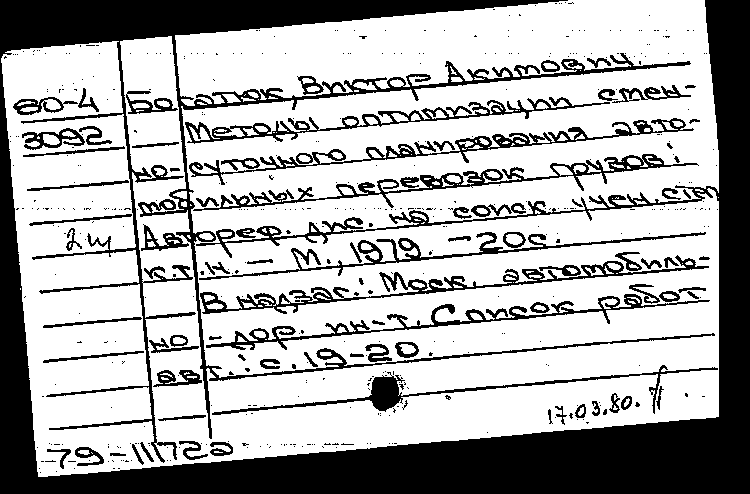 80-4 Богатюк, Виктор Акимович.
3092 Методы оптимизации смен-
но-суточного планирования авто-
мобильных перевозок грузов:
2щ Автореф. дис. на соиск. учен. степ
к.т.н. — М., 1979. — 20с.
В надзаг.: Моск. автомобиль-
но-дор. ин-т. Список работ
авт.: с. 19-20.
17.03.80.
79-11172а